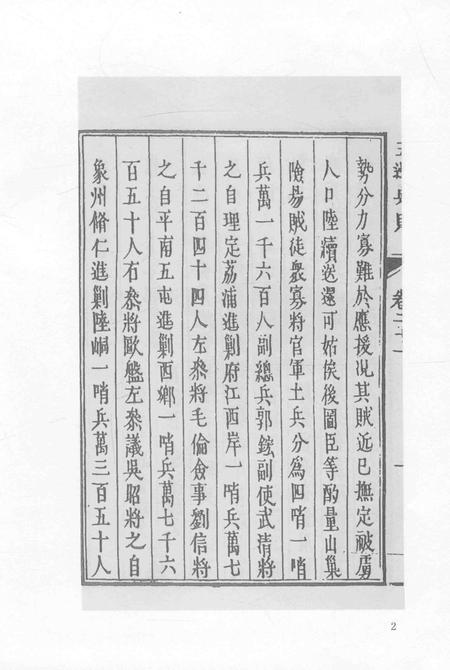 勢分力寡難於應援況其賊近已撫定祓虜
人口陸續送還可姑俟後圖臣等酌量山巢
險易賊徒衆寡將官軍土兵分爲四哨一哨
兵萬一千六百人副總兵郭鋐副使武清將
之自理定荔浦進剿府江西岸一哨兵萬七
千二百四十四人左叅將毛倫僉事劉信將
之自平南五屯進剿西鄉一哨兵萬七千六
百五十人右叅將歐磐左叅議吳昭將之自
象州脩仁進剿陸峒一哨兵萬三百五十人
卷二十一
2